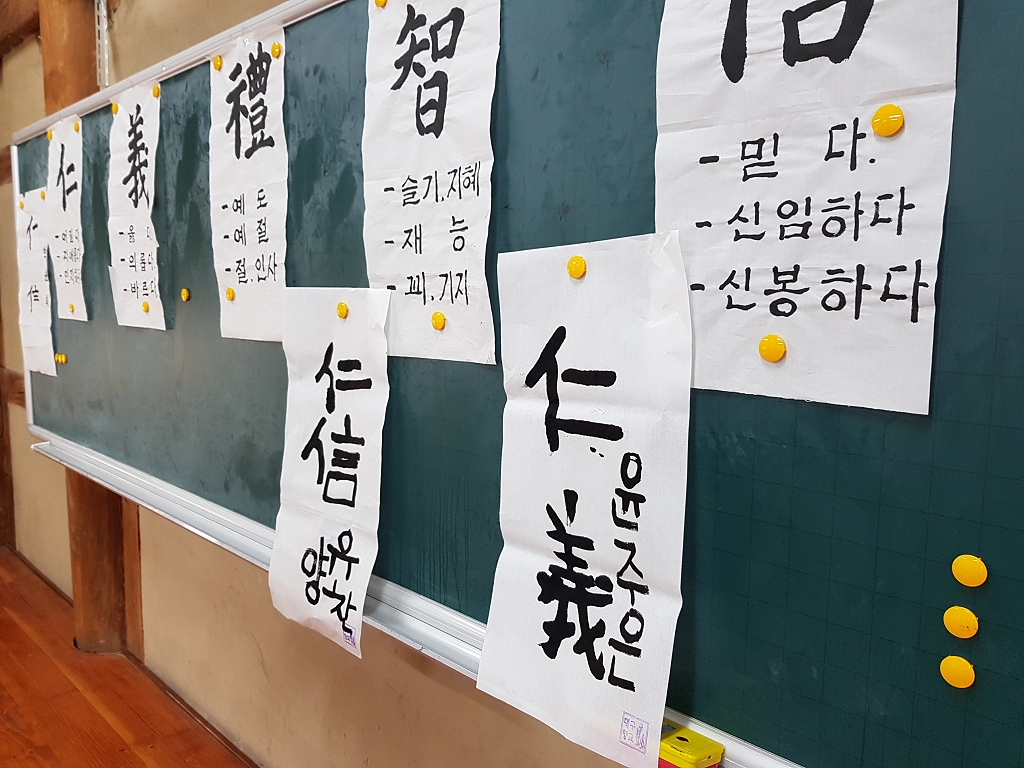 仁
仁
義
- 옳 다
- 의롭다
- 바르다
禮
- 예 도
- 예 절
- 절.인사
智
- 슬기.지혜
- 재 능
- 꾀.기지
- 믿 다.
- 신임하다
- 신봉하다
仁
信
양우찬
仁
義
윤주은